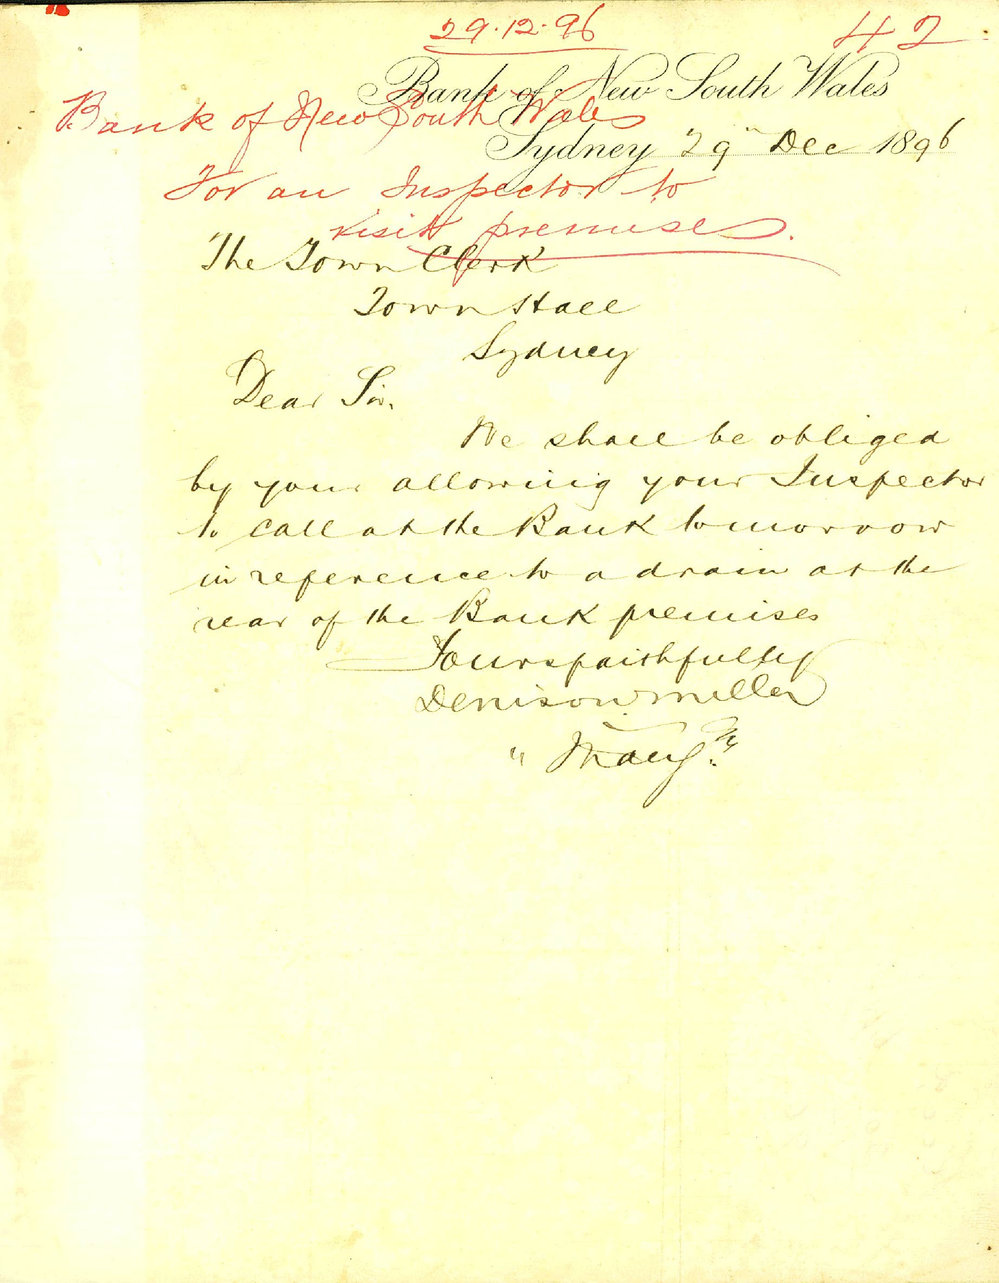 29.12.96
42
Bank of New South Wales
Bank of New South Wales
Sydney 29" Dec 1896
For an Inspector to
visit premises.
The Town Clerk
Town Hall
Sydney
Dear Sir,
We shall be obliged
by your allowing your Inspector
to call at the Bank tomorrow
in reference to a drain at the
rear of the Bank premises
Yours faithfully
Denison Miller